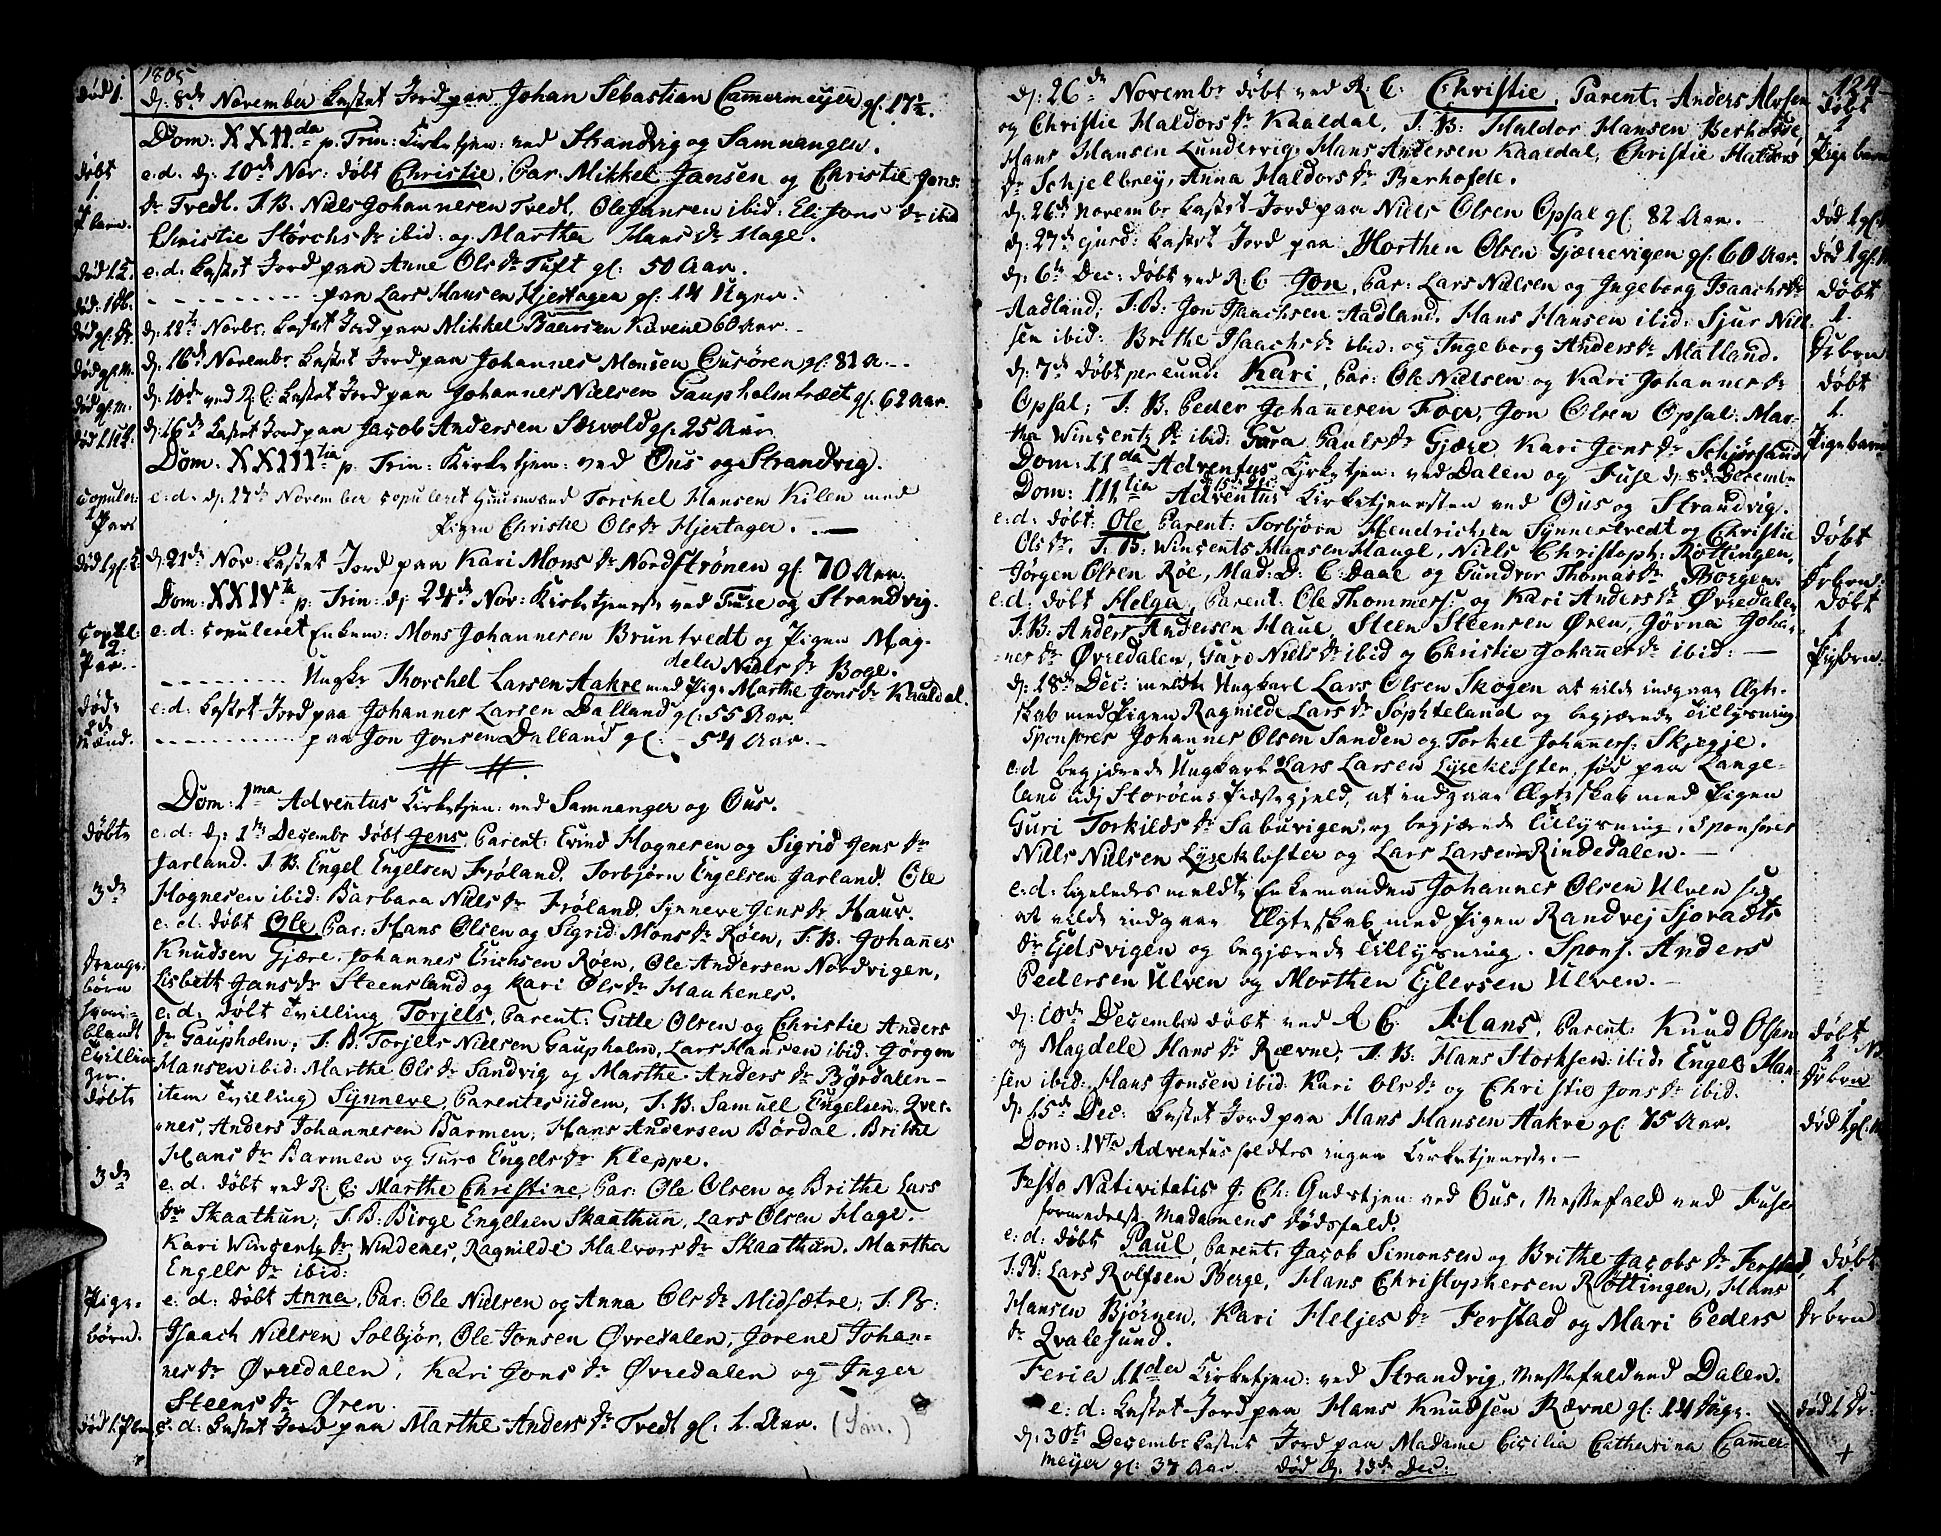 1805
død 1. d: 8de November kastet Jord paa Johan Sebastian Cammermeyer gl: 17½.
Dom: XXIIda p. Trin: Kirketjen: ved Strandvig og Samnanger.
døbt e.d. d: 10de Nov: døbt Christie, Par. Mikkel Jansen og Christie Jons
1. dr Tvedt. T.B. Niels Johannesen Tvedt, Ole Jansen ibid: Eli Jons dr ibid
P barn. Christie Størchs dr ibid: og Martha Hans dr Hage.
død 1 e.d. kastet Jord paa Anne Ols dr Tuft gl: 50 Aar.
død: 1 paa Lars Hansen Hjertagen gl: 14 Uger.
død gl. Norbr: kastet Jord paa Mikkel Kuvene 60 Aar.
død gl. m. d: 16de Novembr kastet Jord paa Johannes Monsen Ousøren gl: 81 A.
død gl. m. d: 10de ved R.C: kastet Jord paa Johannes Nielsen Gaupholmtræet gl: 62 Aar.
død 1 d: 16de kastet Jord paa Jacob Andersen Sævold gl: 25 Aar
Dom: XXIIItia p. Trin: Kirketjen: ved Ous og Strandvig.
Copuler: e.d. d: 17de November copuleret Huusmand Torchel Hansen Kilen med
1 Pari Pigen Christie Ols dr Hjertager.
død 1 gl. d: 21de Nov: kastet Jord paa Kari Mons dr Nordstrønen gl: 70 Aar.
Dom: XXIVta p: Trin: d: 24de Nov: Kirketjeneste ved Fuse og Strandvig.
Copul. e.d: copuleret Enkem: Mons Johannesen Bruntvedt og Pigen Mag-
2 dela Niels dr Boge.
Par. Ungkr Thorchel Larsen Aakre med Pige Marthe Jons dr Kaaldal.
døde e.d. kastet Jord paa Johannes Larsen Dalland gl: 55 Aar.
2de Mænd. paa Jon Jonsen Dalland gl: 54 Aar.
Dom: 1ma Adventus Kirketjen: ved Samnanger og Ous.
døbte e.d: d: 1te Decembr døbt Jens, Parent: Evind Hognesen og Sigrid Jens dr
Jarland. T.B. Engel Engelsen Frøland, Torbjørn Engelsen Jarland. Ole
3de Hognesen ibid: Barbara Niels dr Frøland, Synneve Jens dr Haur.
e.d: døbt Ole Par: Hans Olsen og Sigrid Mons dr Røen, T.B. Johannes
Knudsen Gjære, Johannes Erichsen Røen, Ole Andersen Nordvigen,
Drenge- børn Lisbeth Jans dr Steensland og Kari Ols dr Haukenes.
hvori- e.d: døbt Tvilling Torjels, Parent: Gitle Olsen og Christie Anders
blandt dr Gaupholm, T.B. Torjels Nielsen Gaupholm, Lars Hansen ibid: Jørgen
Tvillin- ger. Hansen ibid: Marthe Ols dr Sandvig og Marthe Anders dr Børdalen
døbte item Tvilling Synneve, Parentes iidem, T.B. Samuel Engelsen Qver-
nes, Anders Johannesen Barmen, Hans Andersen Børdal. Brithe
Hans dr Barmen og Guro Engels dr Kleppe.
3de e.d. døbt ved R.C: Marthe Christine, Par: Ole Olsen og Brithe Lars
dr Skaathun, T.B: Birge Engelsen Skaathun, Lars Olsen Hage.
Kari Wingentz dr Windenes, Ragnilde Halvors dr Skaathun. Martha
Engels dr ibid:
Pige- e.d: døbt Anna, Par: Ole Nielsen og Anna Ols dr Midsætre, T.B:
børn. Isaach Nielsen Solbjør, Ole Jonsen Øvredalen, Jorene Johan-
nes dr Øvredalen, Kari Jons dr Øvredalen og Inger
Steens dr Øren.
død 1 e.d: kastet Jord paa Marthe Anders dr Tvedt gl: 1 Aar. (Sam.)
124
d: 26de Novembr døbt ved R.C: Christie, Parent: Anders Alvsen døbt
og Christie Haldors dr Kaaldal, T.B: Haldor Hansen Berhofde 1
Hans Hansen Lundervig, Hans Andersen Kaaldal, Christie Haldors Pige barn
dr Schjelbrey, Anna Haldors dr Berhofde.
d: 26de Novembr kastet Jord paa Niels Olsen Opsal gl: 82 Aar. død 1 gl.
d: 27de ejusd: kastet Jord paa Morthen Olsen Gjærevigen gl: 60 Aar. død 1 gl. M
d: 6te Dec: døbt ved R.C. Jon, Par: Lars Nielsen og Ingeborg Isaachs dr døbt
Aadland; T.B: Jon Isaachsen Aadland, Hans Hansen ibid: Sjur Niel- 1
sen ibid: Brithe Isaachs dr ibid: og Ingeborg Anders dr Malland. Drbrn
d: 7de døbt per eund: Kari, Par: Ole Nielsen og Kari Johannes dr døbt
Opsal; T.B. Peder Johannesen Foer, Jon Olsen Opsal: Mar- 1.
tha Winsentz dr ibid: Gura Pauls dr Gjære, Kari Jens dr Schjørsand Pigebarn
Dom: IIda Adventus Kirketjen: ved Dalen og Fuse d: 8de Decembr
Dom: IIItia Adventus d: 15de Dec: Kirketjenesten ved Ous og Strandvig.
e:d: døbt: Ole Parent: Torbjørn Hendrichsen Synnestvedt og Christie døbt
Ols dr. T.B: Winsents Hansen Hauge, Niels Christoph: Røttingen, 1
Jørgen Olsen Røe, Mad: D: C: Daae og Gundvor Thomas dr Borgen. Drbrn
e:d: døbt Helga, Parent: Ole Thommess: og Kari Anders dr Øvredalen døbt
T.B: Anders Andersen Haue, Steen Steensen Øren, Jørna Johan- 1
nes dr Øvredalen, Guro Niels dr ibid og Christie Johannes dr ibid: Pigbrn:
d: 18de Dec: meldte Ungkarl Lars Olsen Skogen at ville indgaae Ægte-
skab med Pigen Ragnilde Lars dr Sophteland og begjærede Tillysning
Sponsores Johannes Olsen Sanden og Torkel Johanness: Skjegje.
e:d begjærede Ungkarl Lars Larsen Lysekloster, fød paa Lange-
land udj Storøens Præstegjeld, at indgaae Ægteskab med Pigen
Guri Torkilds dr Sabuvigen, og begjærede Tillysning, Sponsores
Niels Nielsen Lysekloster og Lars Larsen Rindedalen.
e:d: ligeledes meldte Enkemanden Johannes Olsen Ulven sig
at ville indgaae Ægteskab med Pigen Randvej Sjovadts
dr Ejdsvigen og begjærede Tillysning. Spons: Anders
Pedersen Ulven og Morthen Ejlersen Ulven.
d: 10de December døbt ved R.C. Hans, Parent: Knud Olsen døbt
og Magdele Hans dr Rævne; T.B: Hans Storksen ibid: Engel Han- 1
sen ibid: Hans Jonsen ibid: Kari Ols dr og Christie Jons dr ibid. Drbrn
d: 15de Dec: kastet Jord paa Hans Hansen Aakre gl: 75 Aar. død 1 gl. M
Dom: IVta Adventus holdtes ingen Kirketjeneste.
Festo Nativitatis J: Ch: Gudstjen: ved Ous, Messefald ved Fuse
formedelst Madamens Dødsfald.
e:d: døbt Paul, Parent: Jacob Simonsen og Brithe Jacobs dr Ferstad, døbt
T.B: Lars Rolfsen Berge, Hans Christophersen Røttingen, Hans 1
Hansen Bjørnen, Kari Heljes dr Ferstad og Mari Peders Drbrn
dr Qvalesund.
Feria IIda Kirketjen: ved Strandvig, Messefald ved Dalen.
e:d: kastet Jord paa Hans Knudsen Rævne gl: 14 Dage. død 1 Dr.
d: 30te Decembr kastet Jord paa Madame Cicilia Catharina Cammer-
meyer gl: 37 Aar. død d: 13de Dec: